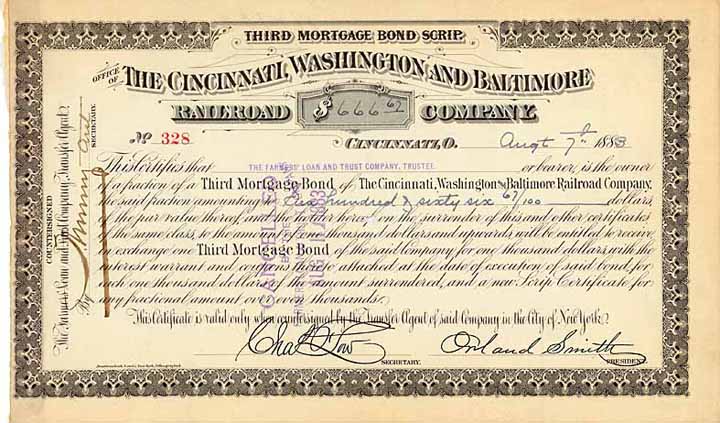 THIRD MORTGAGE BOND SCRIP.
OFFICE OF THE CINCINNATI, WASHINGTON AND BALTIMORE
RAILROAD $666 67 COMPANY.
No 328 CINCINNATI, O. Augt 7th 1883
This Certifies that THE FARMERS' LOAN AND TRUST COMPANY, TRUSTEE or bearer, is the owner
of a fraction of a Third Mortgage Bond of The Cincinnati, Washington and Baltimore Railroad Company,
the said fraction amounting to Six hundred & sixty six 67/100 dollars,
of the par value thereof, and the holder hereof on the surrender of this and other certificates
of the same class, to the amount of one thousand dollars and upwards, will be entitled to receive
in exchange one Third Mortgage Bond of the said company for one thousand dollars, with the
interest warrant and coupons thereto attached at the date of execution of said bond, for
each one thousand dollars of the amount surrendered, and a new Scrip Certificate for
any fractional amount over even thousands.
This Certificate is valid only when countersigned by the Transfer Agent of said Company in the City of New York.
Chas F. Low
SECRETARY.
Orland Smith
PRESIDENT.
COUNTERSIGNED
The Farmers' Loan and Trust Company, Transfer Agent
By
SECRETARY.
CANCELLED